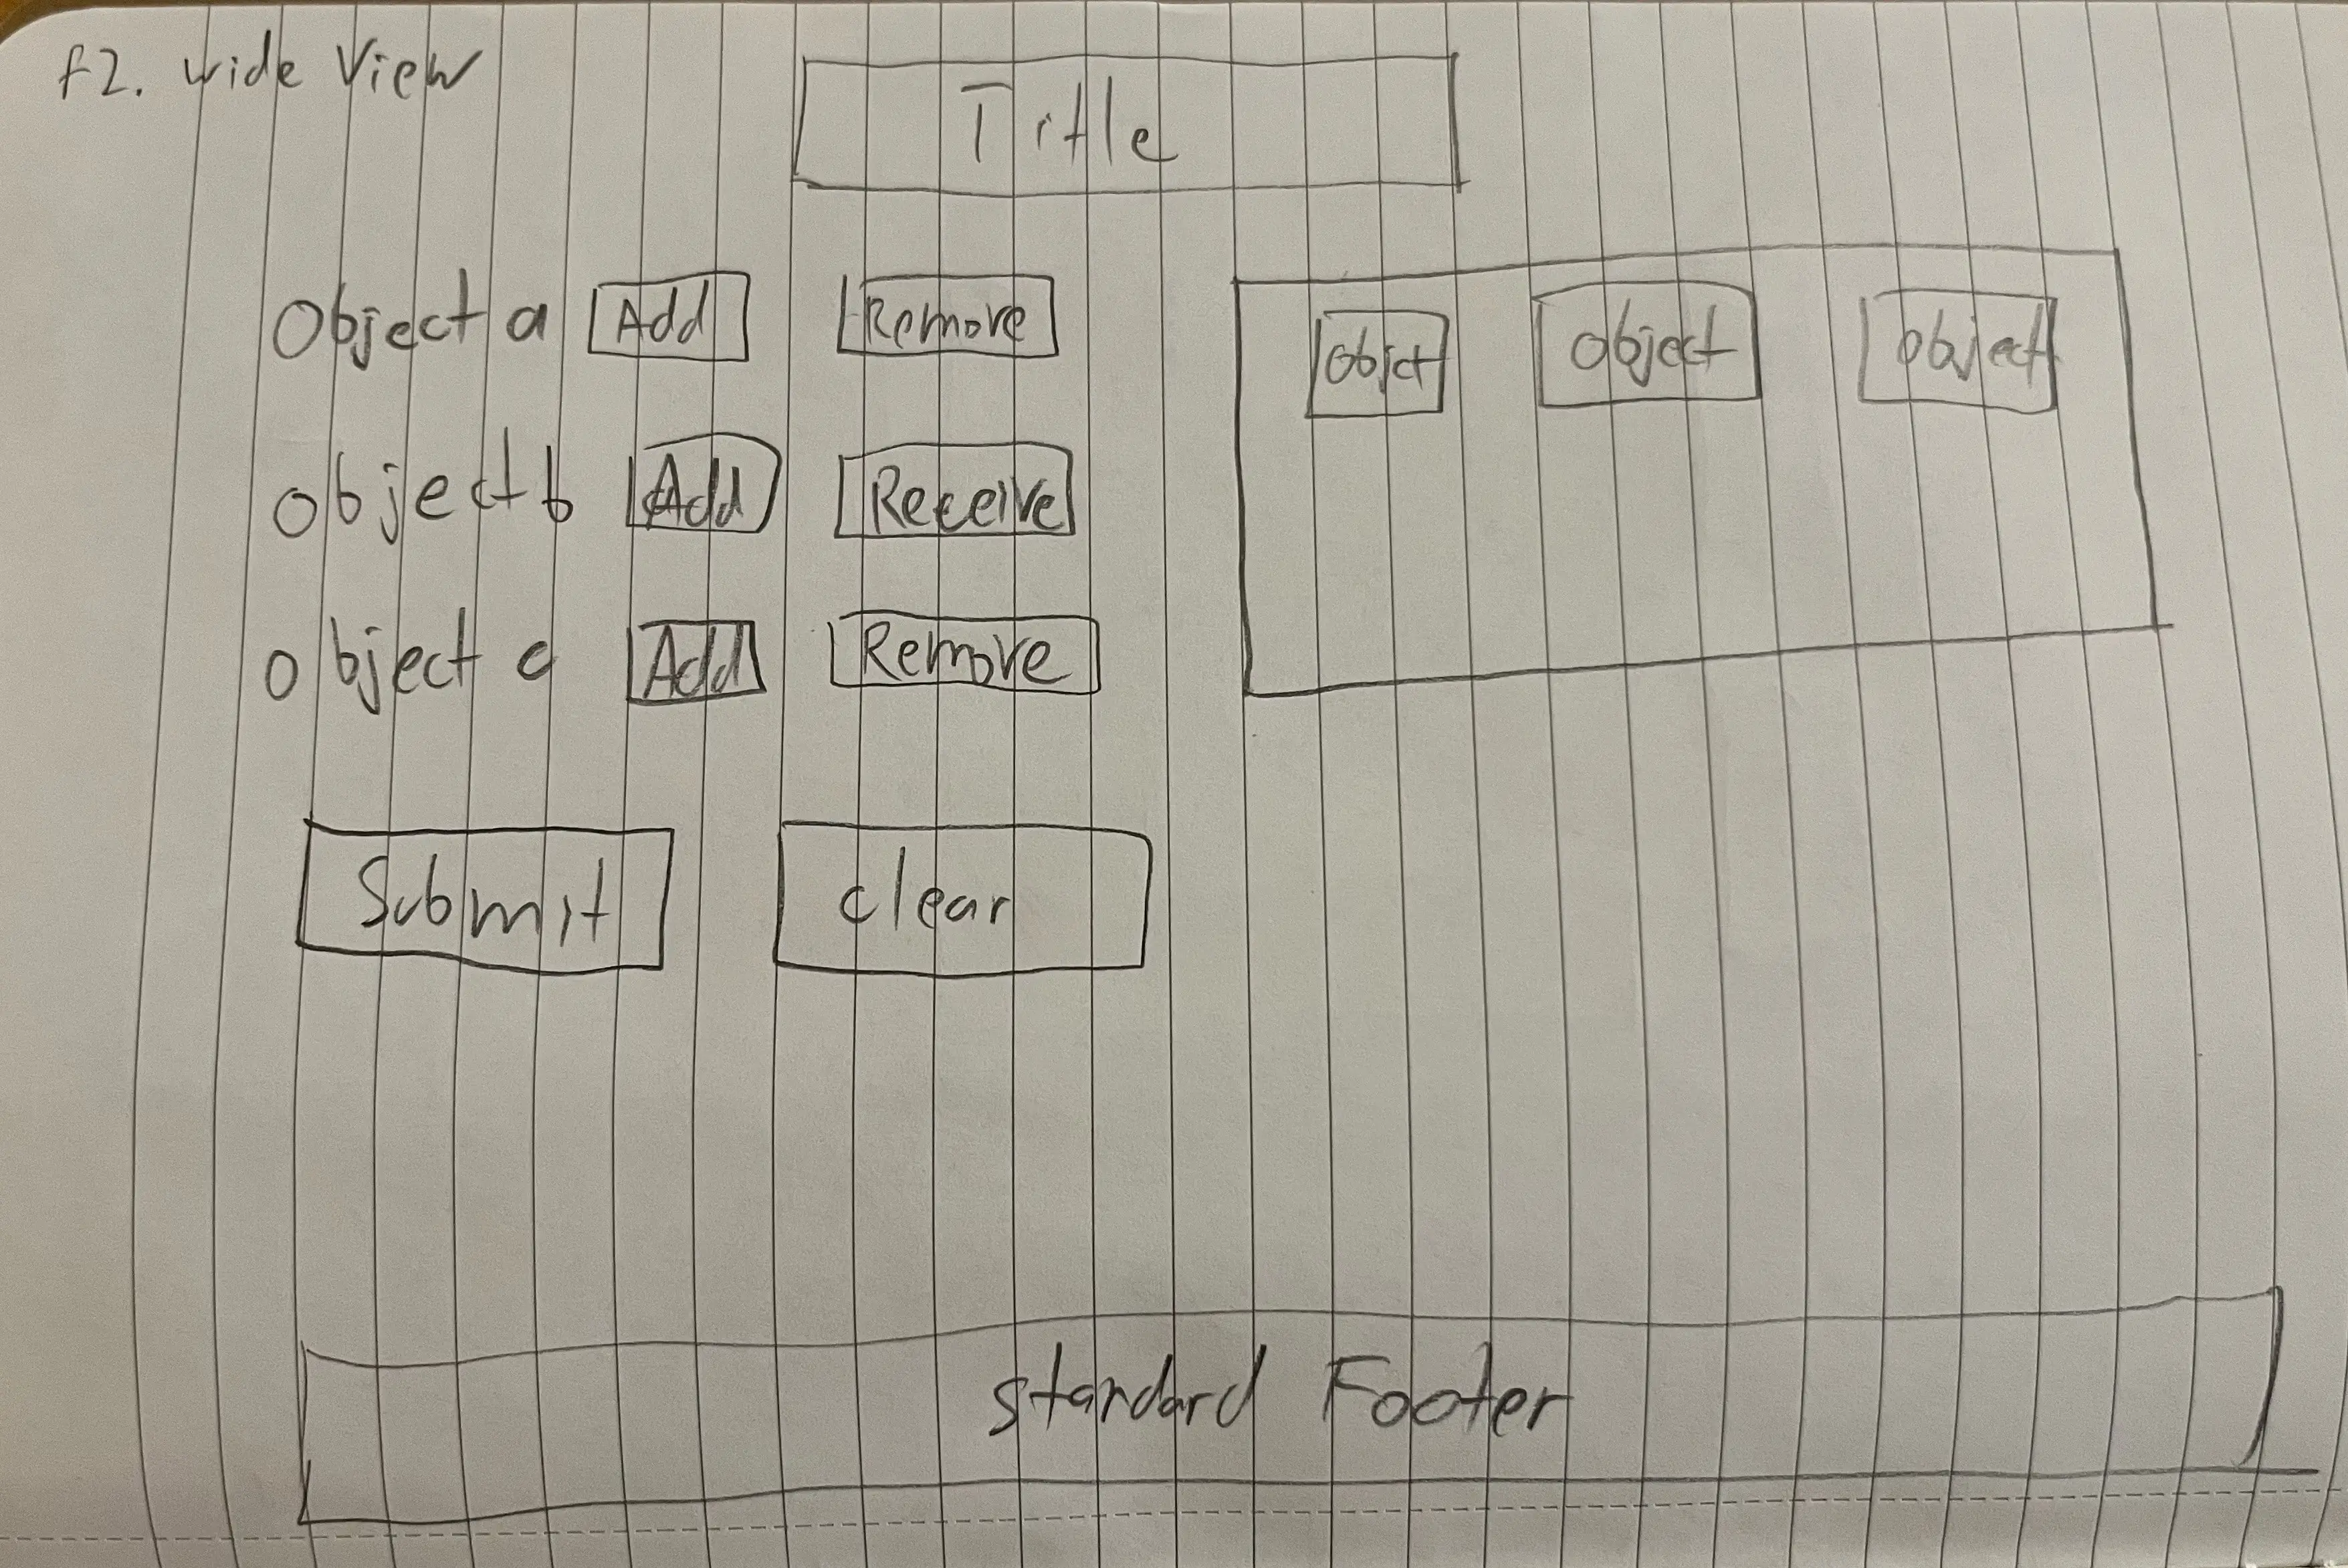 f2. wide View
Title
Object a Add Remove
object b Add Receive
object c Add Remove
objct object object
Submit clear
standard Footer